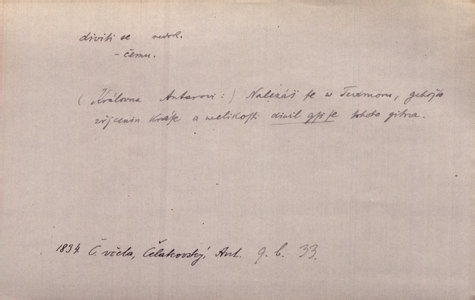 diviti se nedok.
- čemu.
(Královna Antarovi:) Nalezáš se w Tedmoru, gehožto
zřjcenin kráse a welikosti diwil gsi se tohoto gitra.
1834 Č. včela, Čelakovský, Ant. 9. b. 33.